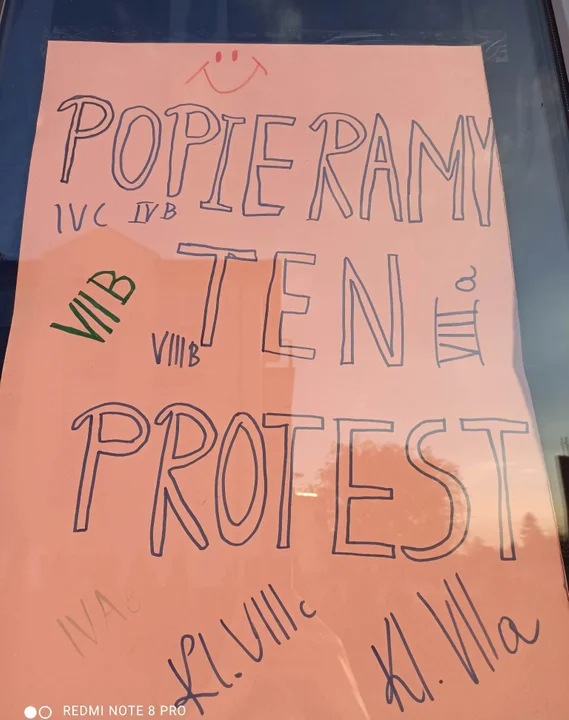 POPIERAMY
IVC IVB
TEN
VIIB
VIIIB
VIIIa
PROTEST
IVA
Kl. VIIIc
Kl. VIIa
REDMI NOTE 8 PRO